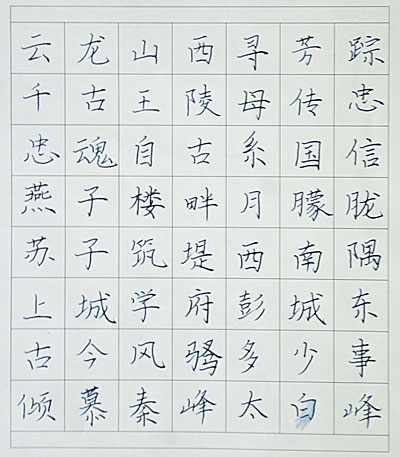 云龙山西寻芳踪
千古王陵母传忠
忠魂自古系国信
燕子楼畔月朦胧
苏子筑堤西南隅
上城学府彭城东
古今风骚多少事
倾慕秦峰太白峰